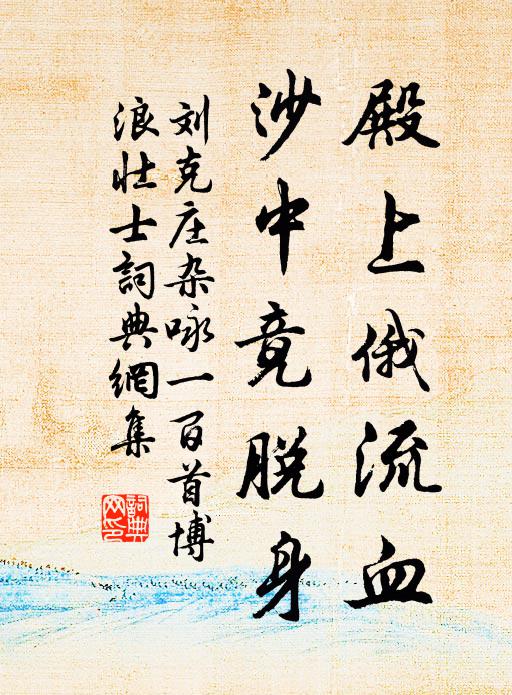 殿上俄流血
沙中竟脱身
刘克庄杂咏一百首博
浪壮士詞典網集
詞典網印